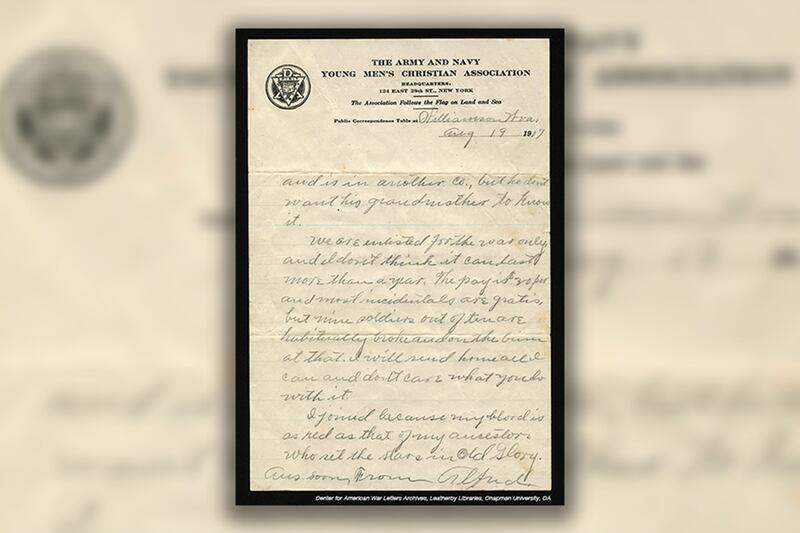 THE ARMY AND NAVY
YOUNG MEN'S CHRISTIAN ASSOCIATION
HEADQUARTERS,
124 EAST 28th ST., NEW YORK
The Association Follows the Flag on Land and Sea
Public Correspondence Table at Williamson W.va.
Aug 19 1917
and is in another Co., but he don't
want his grandmother to know
it.
We are enlisted for the war only
and I don't think it can last
more than a year. The pay is
and most incidentals are gratis,
but nine soldiers out of ten are
habitually broke and on the bum
at that. I will send home all I
can and don't care what you do
with it.
I joined because my blood is
as red as that of my ancestors
who set the stars in Old Glory.
Ans soon, From Alfred.
Center for American War Letters Archives, Leatherby Libraries, Chapman University, CA